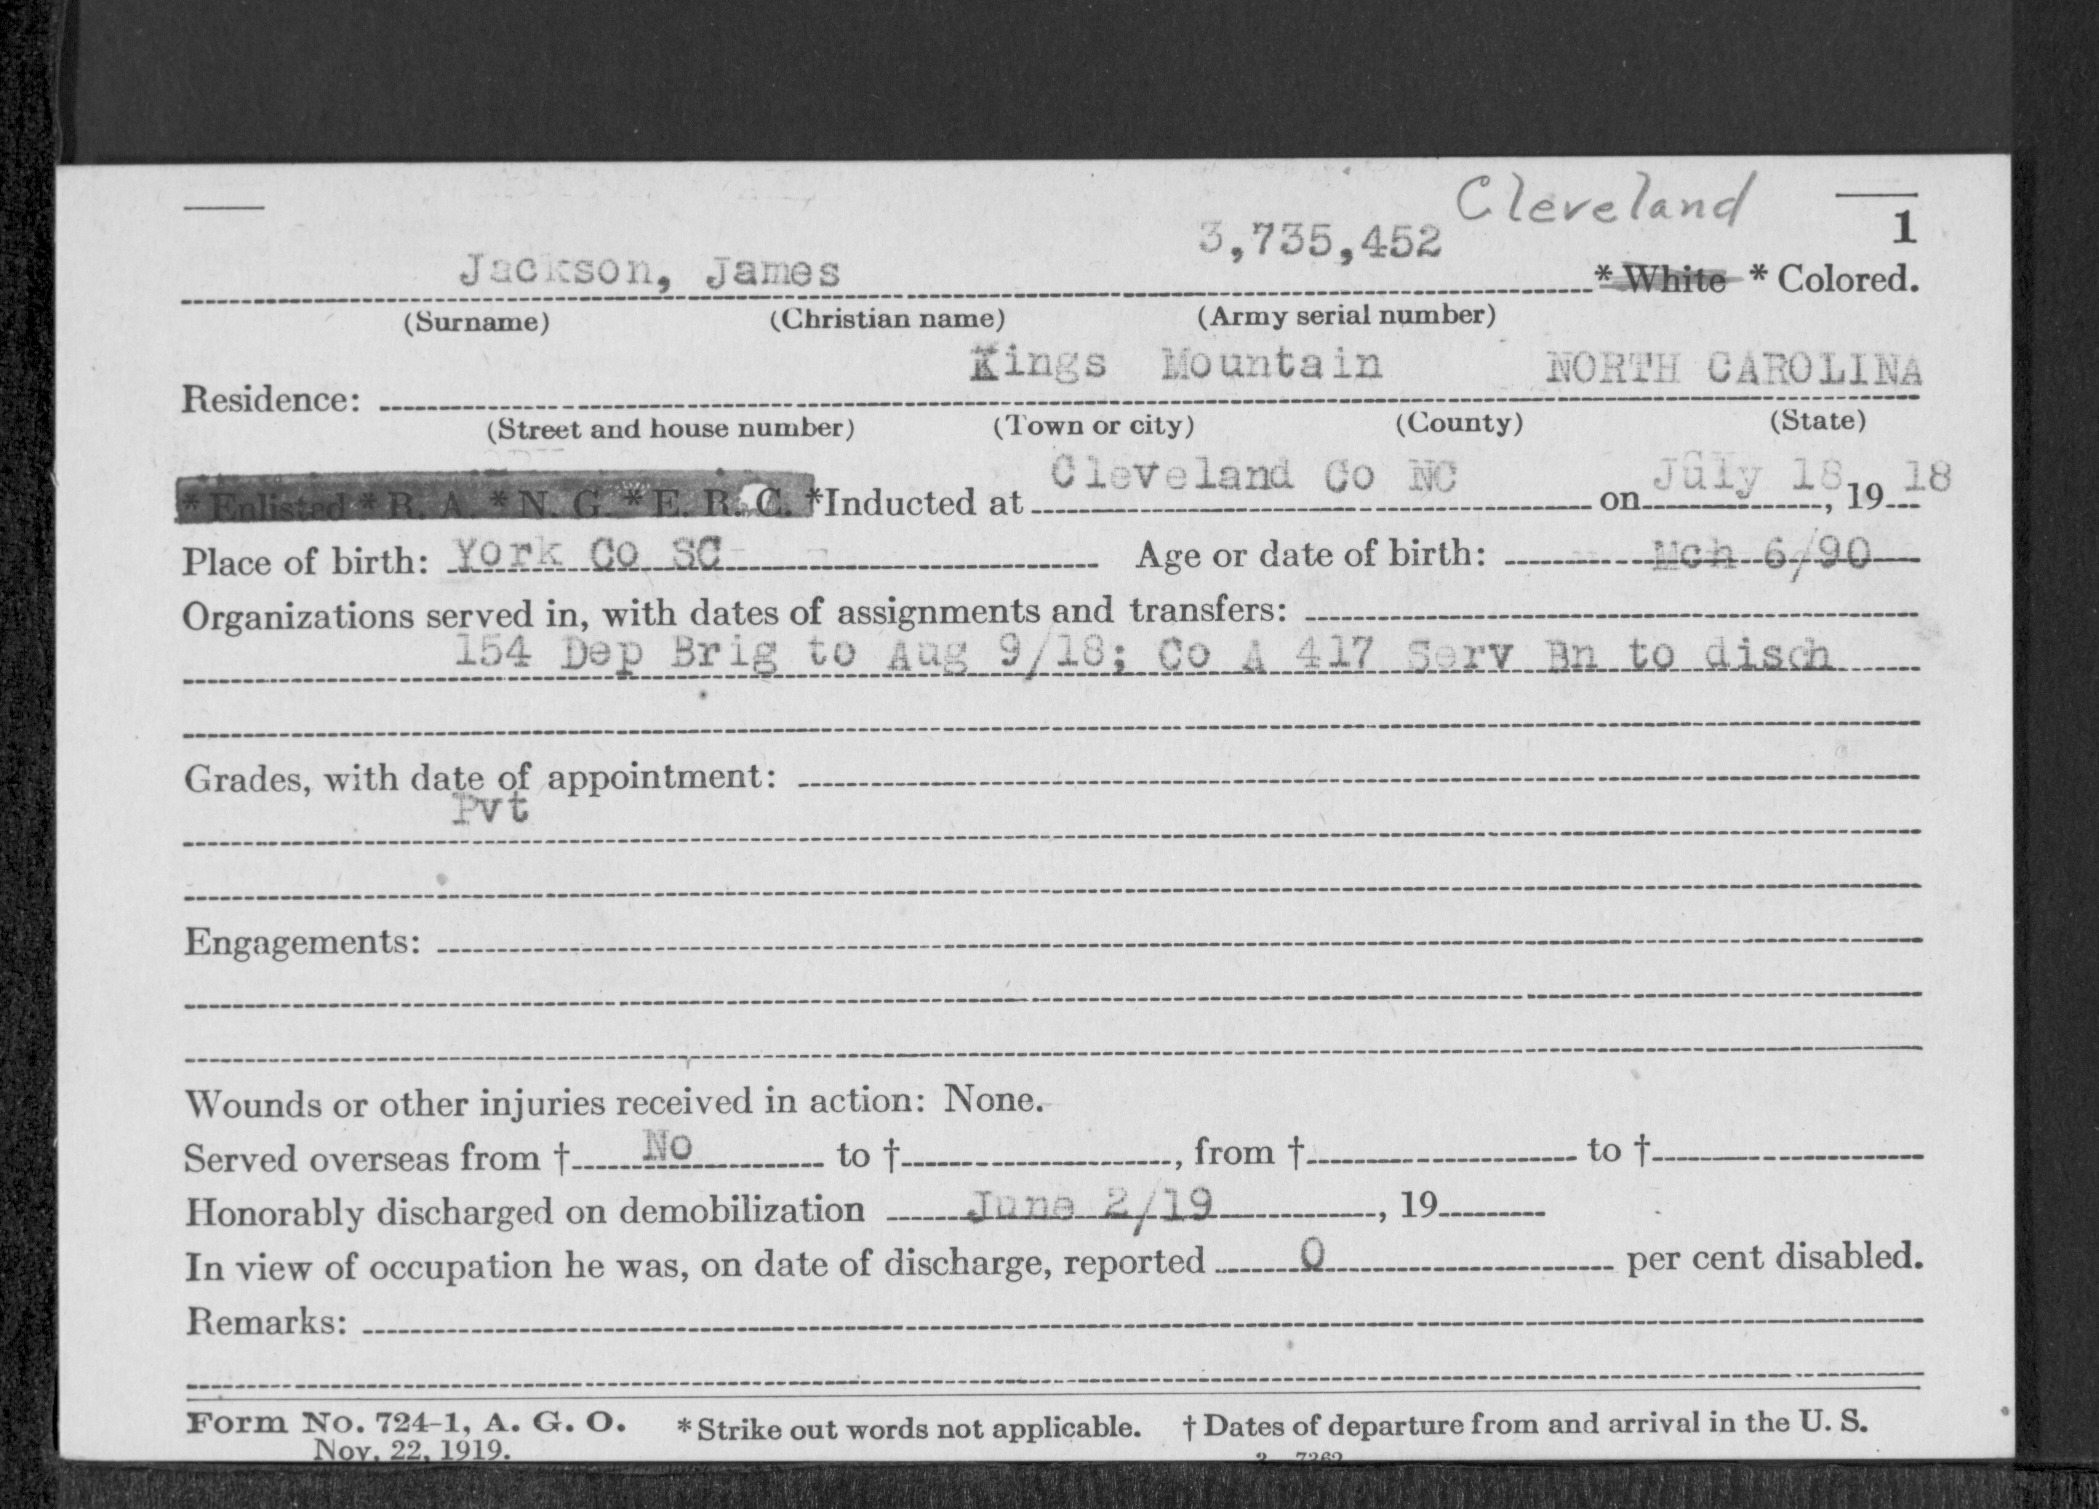 Cleveland
1
Jackson, James 3,735,452 * White * Colored.
(Surname) (Christian name) (Army serial number)
Kings Mountain NORTH CAROLINA
Residence:
(Street and house number) (Town or city) (County) (State)
* Enlisted * R. A. * N. G. * E. R. C. *Inducted at Cleveland Co NC on July 18, 19 18
Place of birth: York Co SC Age or date of birth: Mch 6/90
Organizations served in, with dates of assignments and transfers:
154 Dep Brig to Aug 9/18; Co A 417 Serv Bn to disch
Grades, with date of appointment:
Pvt
Engagements:
Wounds or other injuries received in action: None.
Served overseas from † No to †, from † to †
Honorably discharged on demobilization June 2/19, 19
In view of occupation he was, on date of discharge, reported 0 per cent disabled.
Remarks:
Form No. 724-1, A. G. O. * Strike out words not applicable. † Dates of departure from and arrival in the U. S.
Nov. 22, 1919. 3—7262